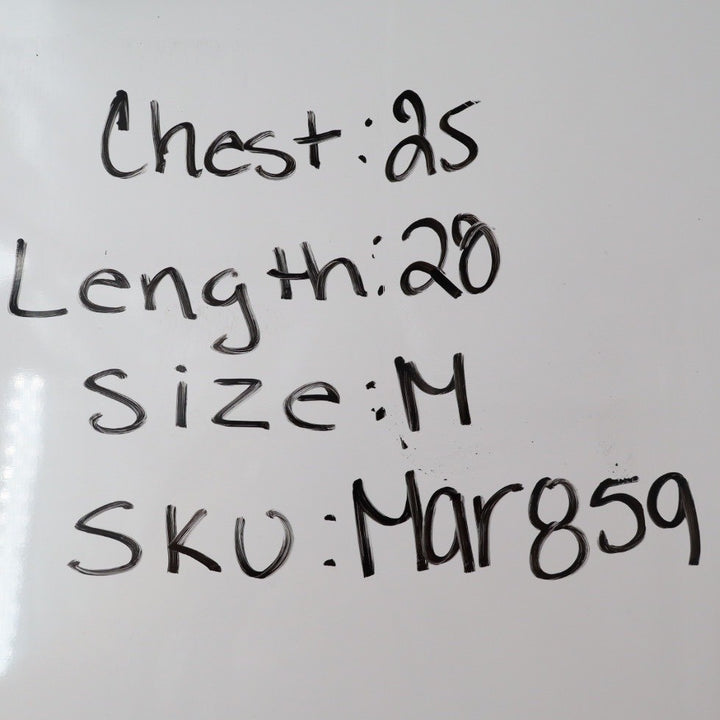 Chest:25
Length:28
Size:M
SKU:Mar859